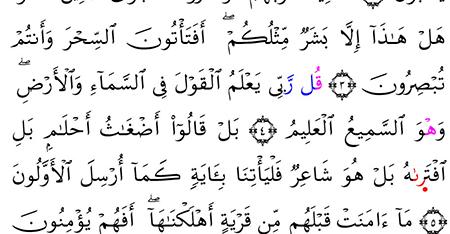 هَلْ هَـٰذَآ إِلَّا بَشَرٌ مِّثْلُكُمْ ۖ أَفَتَأْتُونَ ٱلسِّحْرَ وَأَنتُمْ
تُبْصِرُونَ ﴿٣﴾ قُل رَّبِّى يَعْلَمُ ٱلْقَوْلَ فِى ٱلسَّمَآءِ وَٱلْأَرْضِ ۖ
وَهْوَ ٱلسَّمِيعُ ٱلْعَلِيمُ ﴿٤﴾ بَلْ قَالُوٓا۟ أَضْغَـٰثُ أَحْلَـٰمٍۭ بَلِ
ٱفْتَرِىٰهُ بَلْ هُوَ شَاعِرٌ فَلْيَأْتِنَا بِـَٔايَةٍ كَمَآ أُرْسِلَ ٱلْأَوَّلُونَ
﴿٥﴾ مَآ ءَامَنَتْ قَبْلَهُم مِّن قَرْيَةٍ أَهْلَكْنَـٰهَآ ۖ أَفَهُمْ يُؤْمِنُونَ